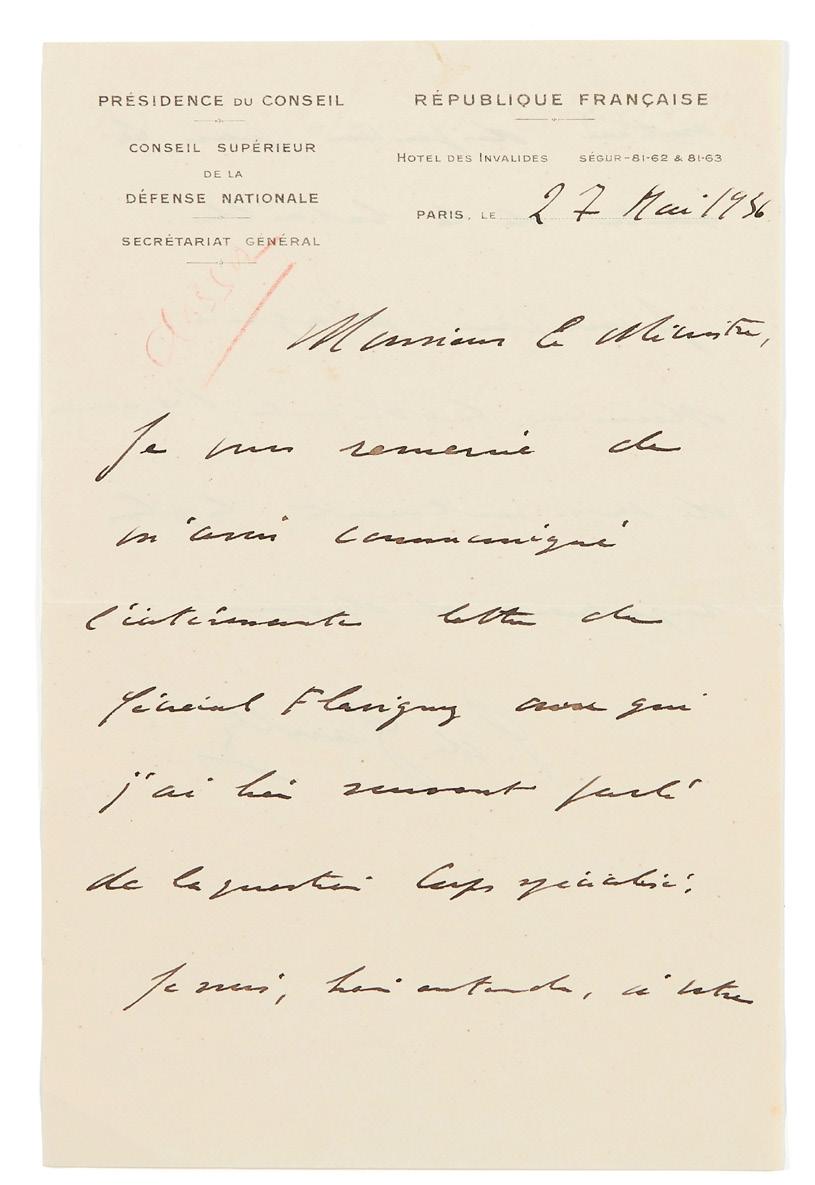 PRÉSIDENCE DU CONSEIL
CONSEIL SUPÉRIEUR
DE LA
DÉFENSE NATIONALE
SECRÉTARIAT GÉNÉRAL
RÉPUBLIQUE FRANÇAISE
HOTEL DES INVALIDES SÉGUR-81-62 & 81-63
PARIS, LE 27 Mai 1936
classer
Monsieur le Ministre,
Je vous remercie de
m'avoir communiqué
l'intéressante lettre du
général Flavigny avec qui
j'ai bien souvent parlé
de la question Corps spécialisé.
Je suis, bien entendu, à votre